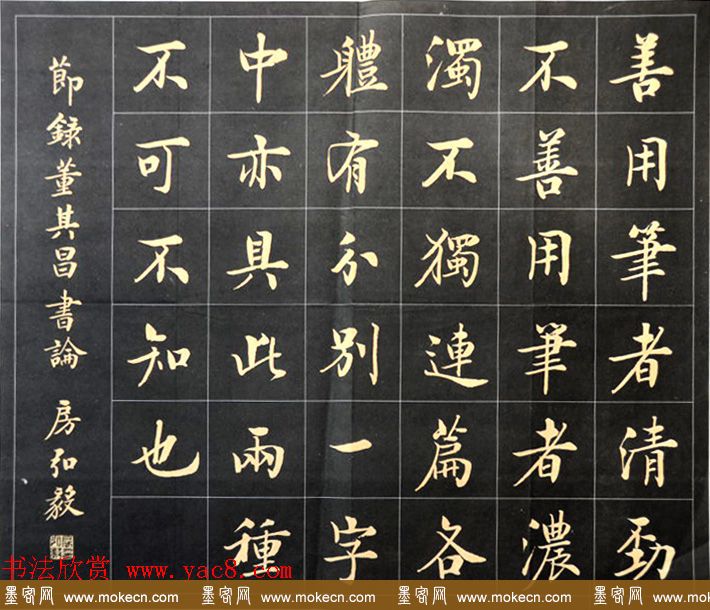 善用筆者清勁
不善用筆者濃
濁不獨連篇各
體有分別一字
中亦具此兩種
不可不知也
節錄董其昌書論 房弘毅
书法欣赏 www.yac8.com
墨客网 www.mokecn.com 墨客网 www.mokecn.com 墨客网 www.mokecn.com 墨客网 www.mokecn.com